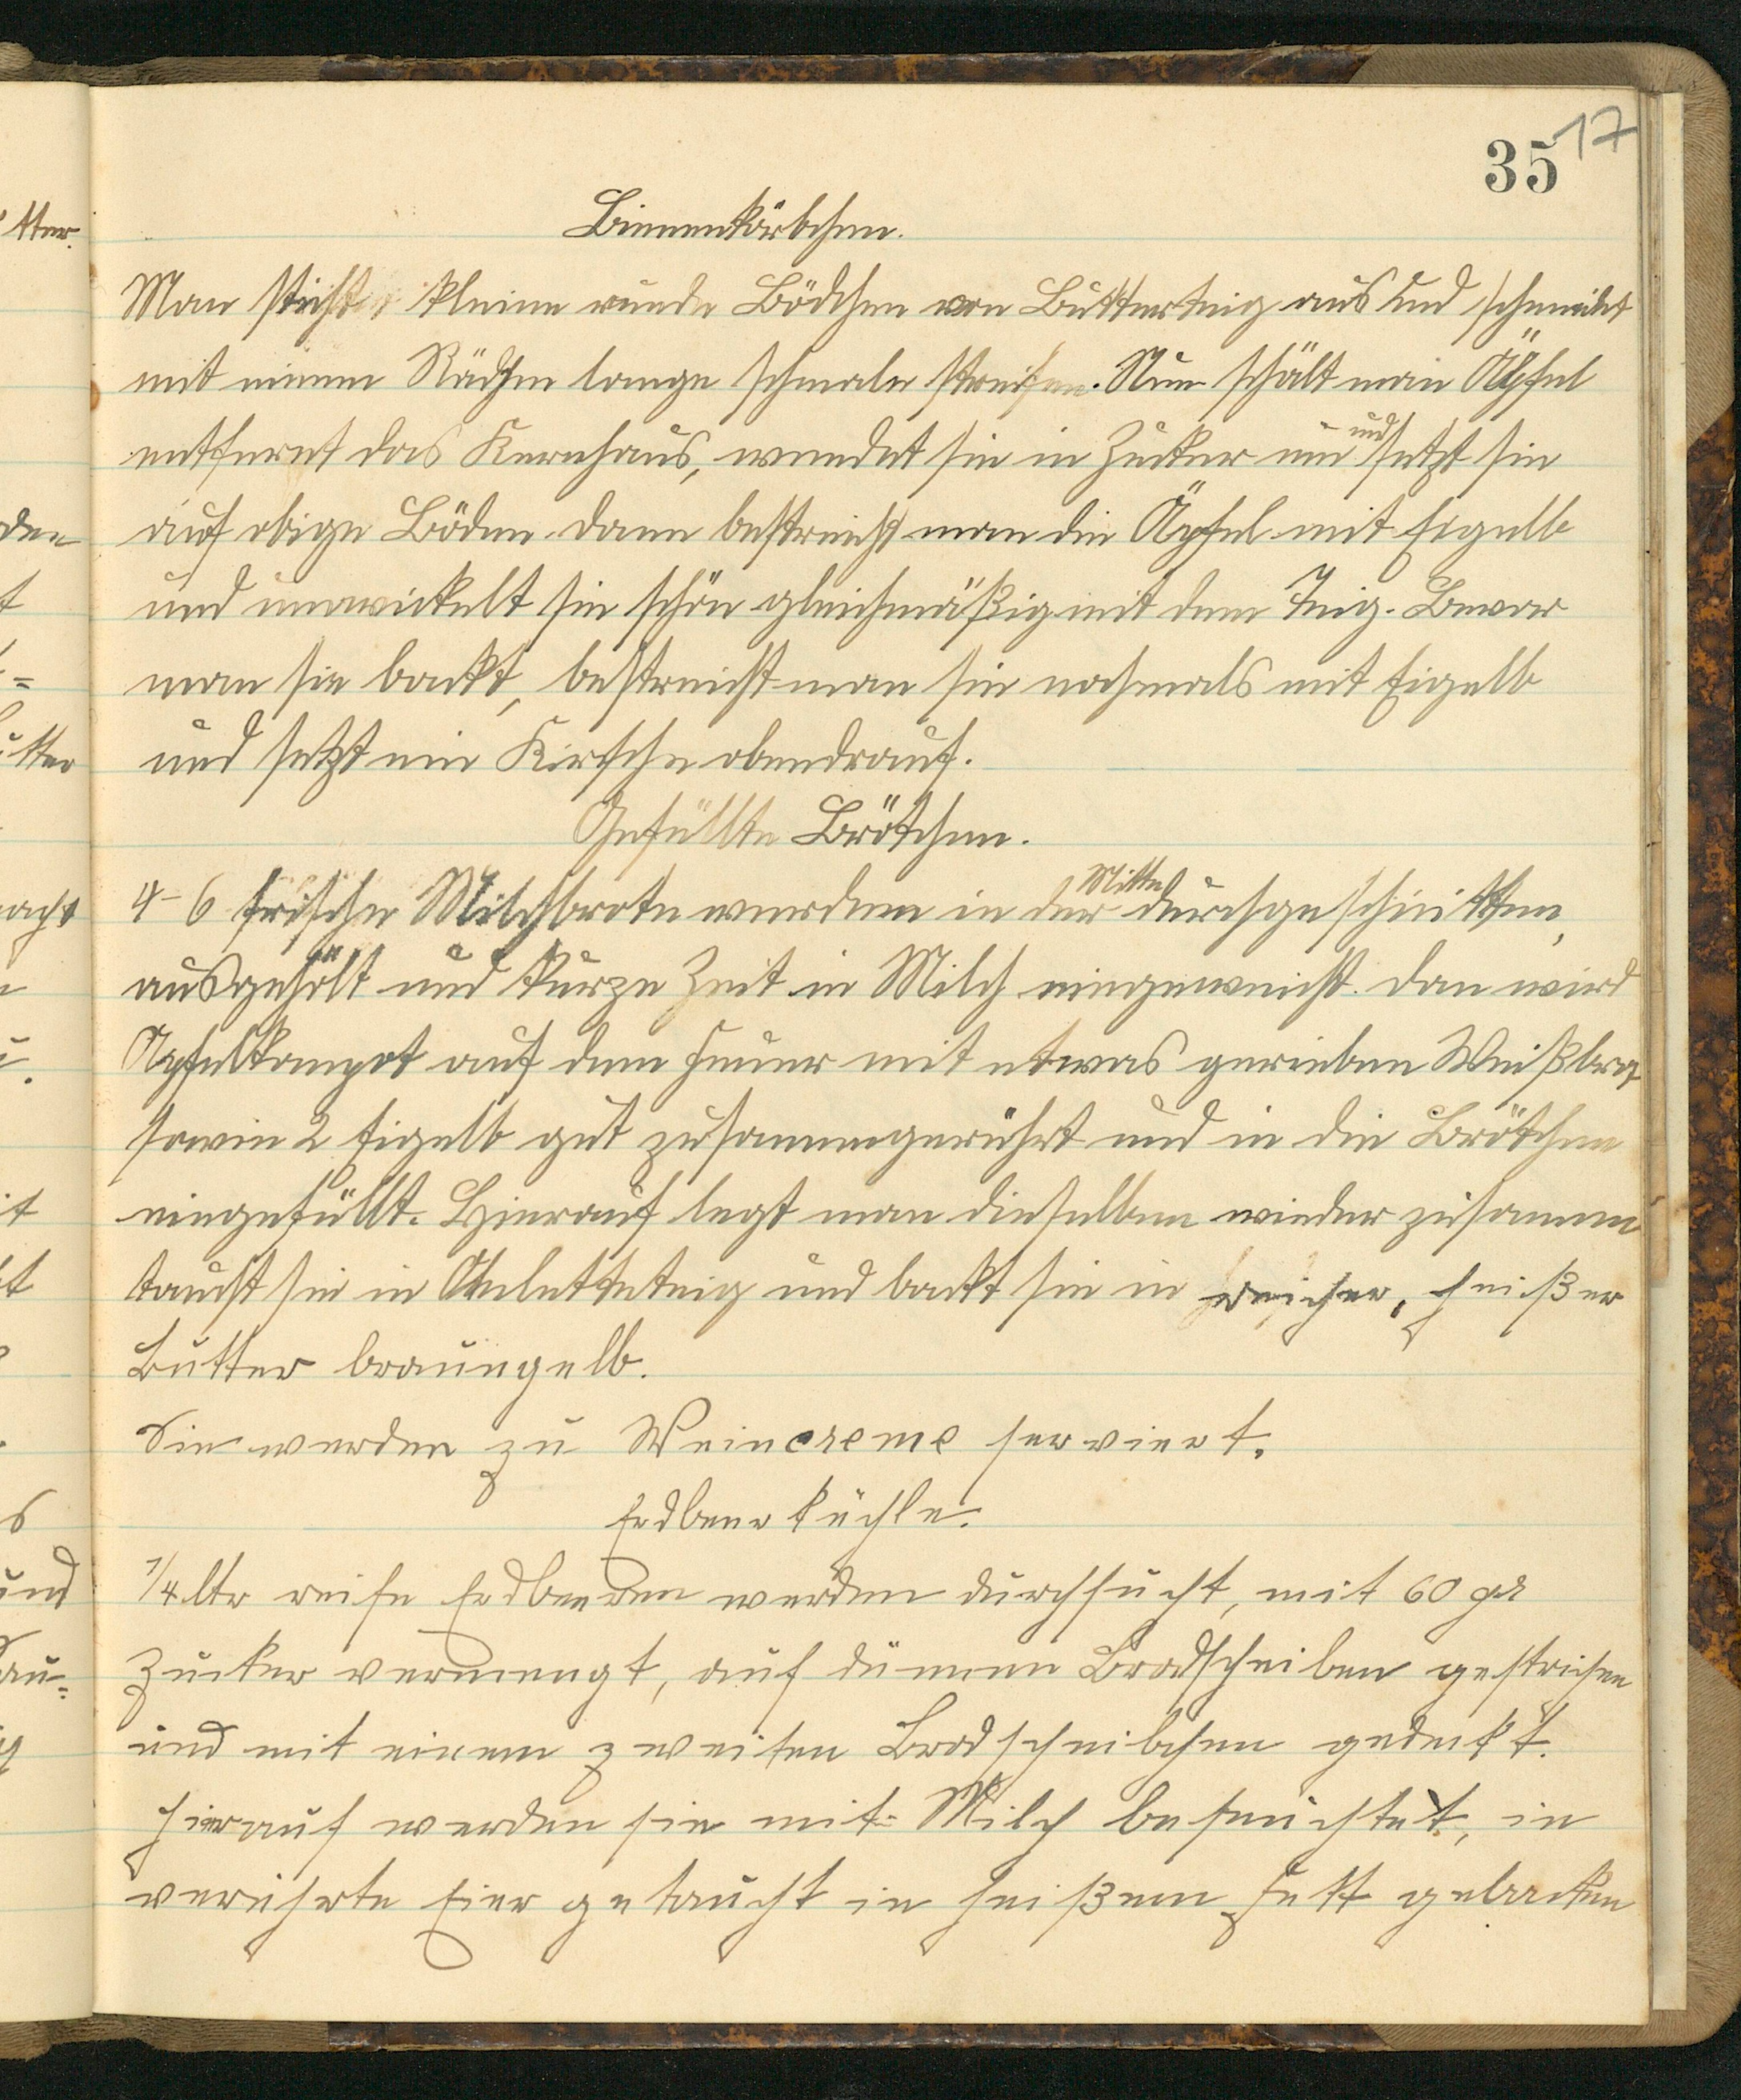 35 17
Bienenkörbchen.
Man sticht kleine runde Bödchen von Butterteig aus und schneidet
mit einem Rädchen lange schmale streifen. Nun schält man Äpfel
entfernt das Kernhaus, wendet sie in Zucker um und setzt sie
auf obige Böden. dann bestreicht man die Äpfel mit Eigelb
und umwickelt sie schön gleichmäßig mit dem Teig. Bevor
man sie backt, bestreicht man sie nochmals mit Eigelb
und setzt ein Kirsche obendrauf.
Gefüllte Brötchen.
4-6 frische Milchbrote werden in der Mitte durchgeschnitten,
ausgehölt und kurze Zeit in Milch eingeweicht. dan wird
Apfelkompot auf dem Feuer mit etwas gerieben Weißbrot
sowie 2 Eigelb gut zusammengerührt und in die Brötchen
eingefüllt. Hierauf legt man dieselben wieder zusammen
taucht sie in Omletteteig und backt sie in heißer
Butter braungelb.
Sie werden zu Weincreme serviert.
Erdbeer küchle.
1/4 ltr reife Erdbeeren werden durchsucht, mit 60 gr
Zucker vermengt, auf dünnen Brodscheiben gestrichen
und mit einem zweiten Brodscheibchen gedeckt.
Hierauf werden sie mit Milch befeuchtet, in
verührte Eier getaucht in heißem Fett gebacken